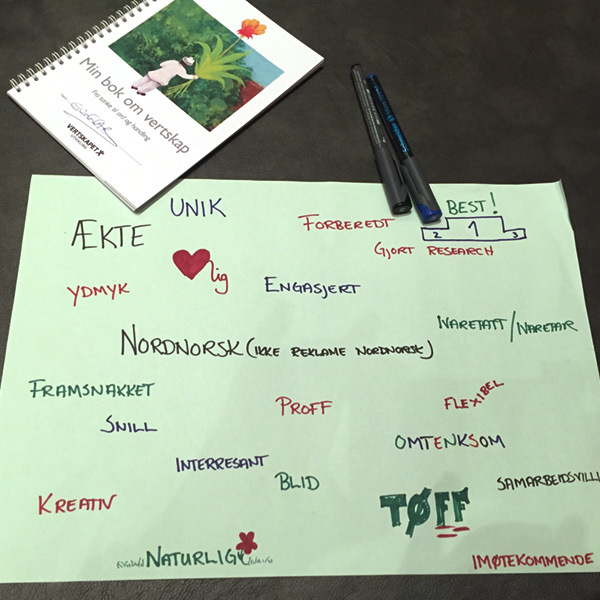 Min bok om vertskap
Før tanke til ord og handling
GUNNAR
VERTSKAPET
UNIK
ÆKTE
FORBEREDT
BEST!
2 1 3
GJORT RESEARCH
lig
YDMYK
ENGASJERT
IVARETATT/IVARETAR
NORDNORSK (IKKE REKLAME NORDNORSK)
FRAMSNAKKET
SNILL
PROFF
FLEXIBEL
OMTENKSOM
INTERRESANT
BLID
SAMARBEIDSVILLI
KREATIV
TØFF
NATURLIG
IMØTEKOMMENDE